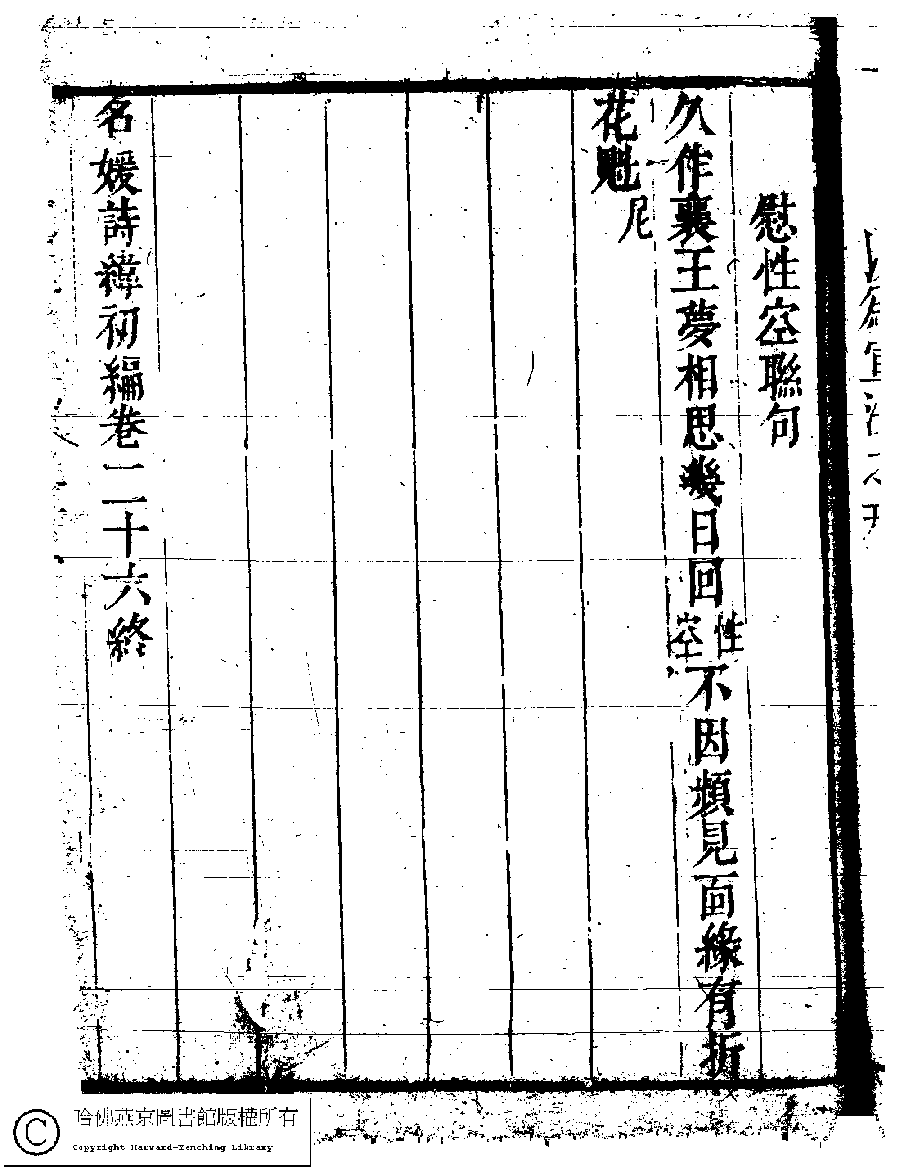 慰性空聯句
久作襄王夢相思幾日回性空不因頻見面緣有折
花魁尼
名媛詩緯初編卷二十六終
哈佛燕京圖書館版權所有
Copyright Harvard-Yenching Library